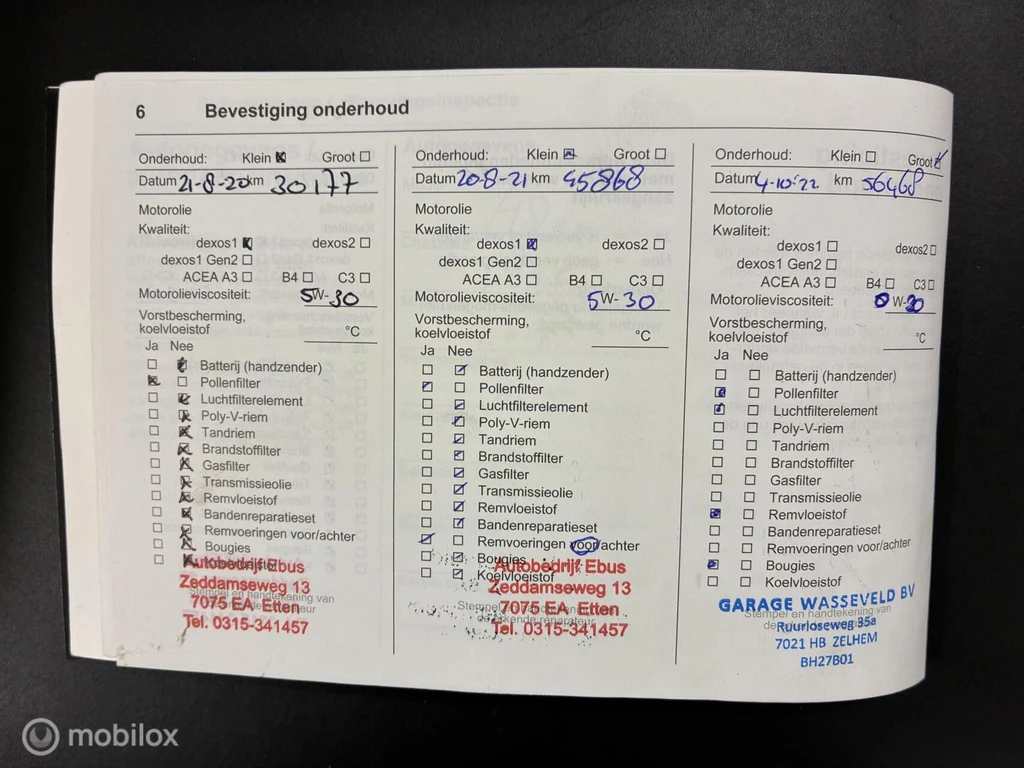 6 Bevestiging onderhoud
Onderhoud: Klein Groot
Datum 21-8-20 km 30177
Motorolie
Kwaliteit:
dexos1 dexos2
dexos1 Gen2
ACEA A3 B4 C3
Motorolieviscositeit: 5W-30
Vorstbescherming,
koelvloeistof °C
Ja Nee
Batterij (handzender)
Pollenfilter
Luchtfilterelement
Poly-V-riem
Tandriem
Brandstoffilter
Gasfilter
Transmissieolie
Remvloeistof
Bandenreparatieset
Remvoeringen voor/achter
Bougies
Autobedrijf Ebus
Zeddamseweg 13
Stempel en handtekening van
7075 EA Etten
Tel. 0315-341457
Onderhoud: Klein Groot
Datum 20-8-21 km 45868
Motorolie
Kwaliteit:
dexos1 dexos2
dexos1 Gen2
ACEA A3 B4 C3
Motorolieviscositeit: 5W-30
Vorstbescherming,
koelvloeistof °C
Ja Nee
Batterij (handzender)
Pollenfilter
Luchtfilterelement
Poly-V-riem
Tandriem
Brandstoffilter
Gasfilter
Transmissieolie
Remvloeistof
Bandenreparatieset
Remvoeringen voor/achter
Bougies
Autobedrijf Ebus
Koelvloeistof
Zeddamseweg 13
Stempel en handtekening van
7075 EA Etten
Tel. 0315-341457
Onderhoud: Klein Groot
Datum 4-10-22 km 56468
Motorolie
Kwaliteit:
dexos1 dexos2
dexos1 Gen2
ACEA A3 B4 C3
Motorolieviscositeit: 0W-20
Vorstbescherming,
koelvloeistof °C
Ja Nee
Batterij (handzender)
Pollenfilter
Luchtfilterelement
Poly-V-riem
Tandriem
Brandstoffilter
Gasfilter
Transmissieolie
Remvloeistof
Bandenreparatieset
Remvoeringen voor/achter
Bougies
Koelvloeistof
GARAGE WASSEVELD BV
Stempel en handtekening van
Ruurloseweg 35a
7021 HB ZELHEM
BH27B01
mobilox